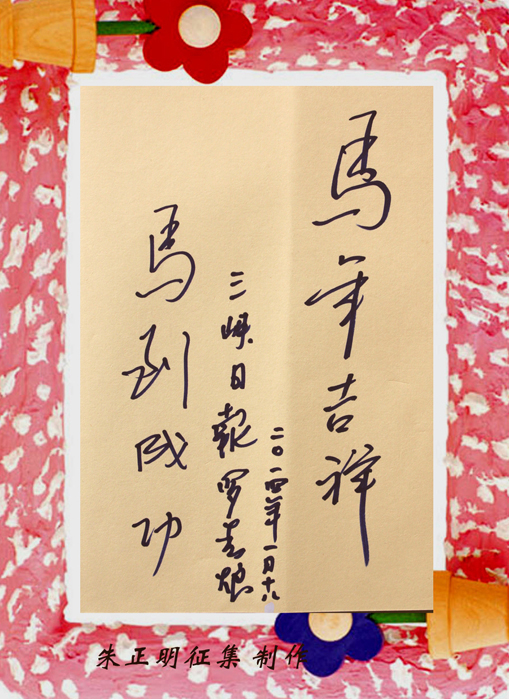 馬年吉祥
二〇一四年一月十八
三峡日報罗春烺
馬到成功
朱正明征集 制作